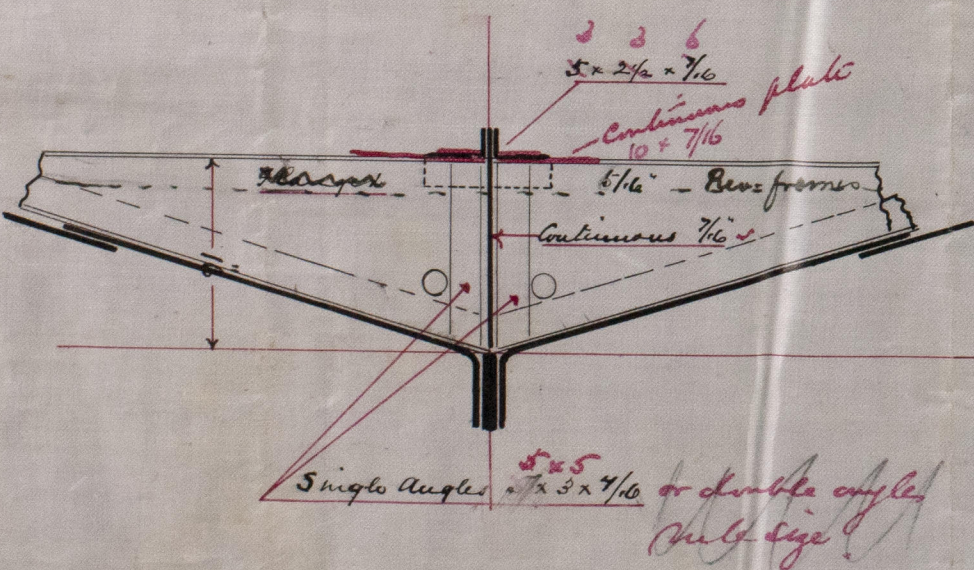 3 3 6
5 x 2½ x 7/16
Continuous plate
10 x 7/16
5/16" - Rev= frames
Continuous 7/16"
5 x 5
Single Angles x 3 x 4/16 or double angles
rule size